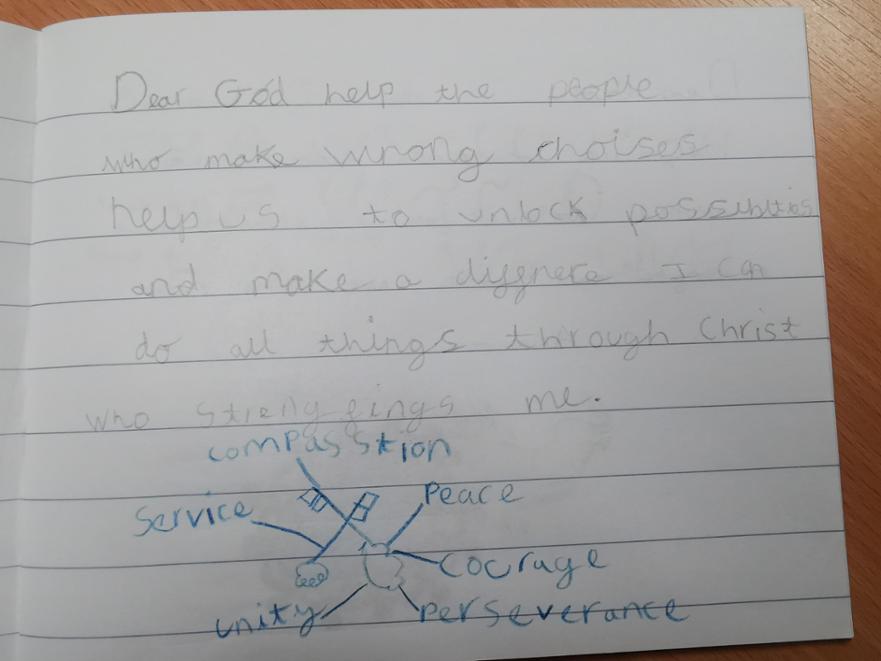 Dear God help the people
who make wrong choises
help us to unlock possiblities
and make a diffrere I can
do all things through Christ
who strengfings me.
compasstion
Service
Peace
cocrage
unity
perseverance